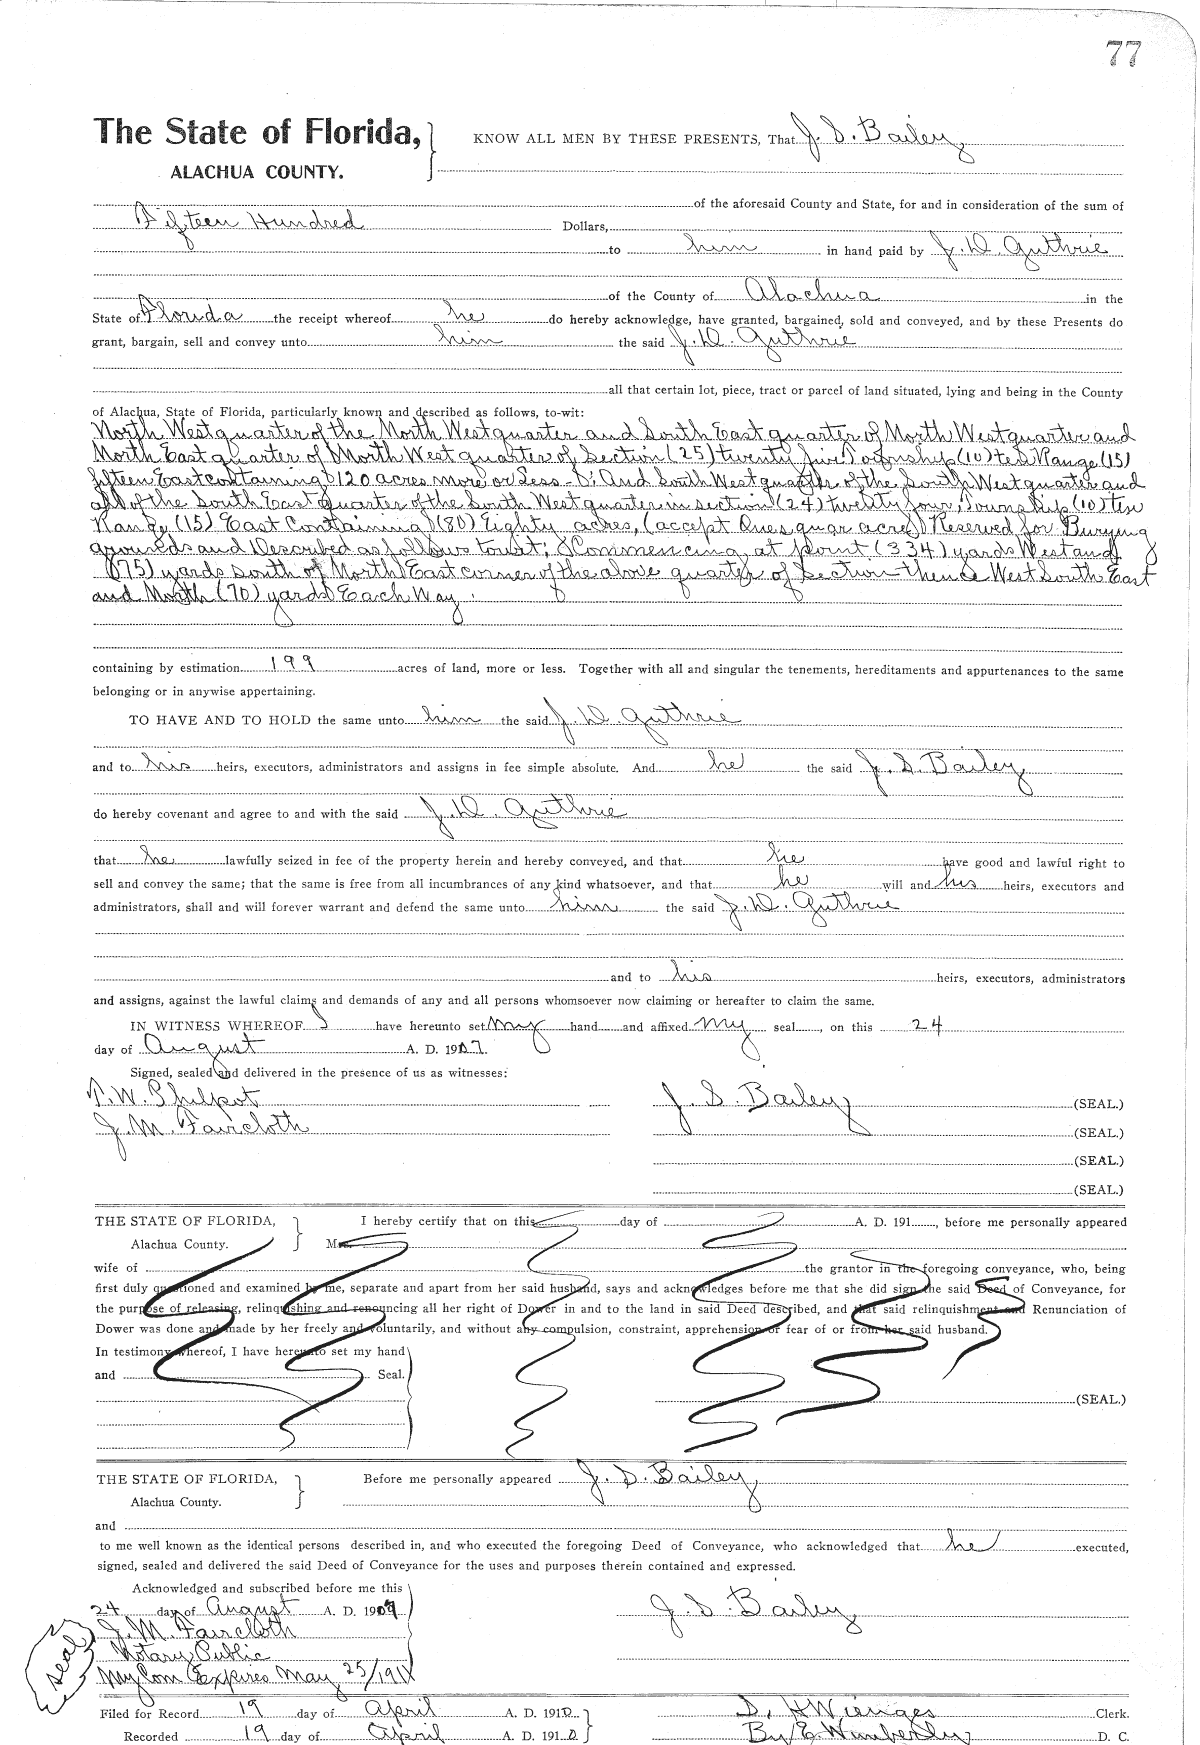 77
The State of Florida, KNOW ALL MEN BY THESE PRESENTS, That J. S. Bailey
ALACHUA COUNTY.
of the aforesaid County and State, for and in consideration of the sum of
Fifteen Hundred Dollars,
to him in hand paid by J. D. Guthrie
of the County of Alachua in the
State of Florida the receipt whereof he do hereby acknowledge, have granted, bargained, sold and conveyed, and by these Presents do
grant, bargain, sell and convey unto him the said J. D. Guthrie
all that certain lot, piece, tract or parcel of land situated, lying and being in the County
of Alachua, State of Florida, particularly known and described as follows, to-wit:
North West quarter of the North West quarter and South East quarter of North West quarter and
North East quarter of North West quarter of Section (25) twenty five Township (10) ten Range (15)
fifteen East containing 120 acres more or Less - And South West quarter of the South West quarter and
all of the South East quarter of the South West quarter in section (24) twenty four, Township (10) ten
Range (15) East Containing (80) Eighty acres, (accept One squar acre) Reserved for Burying
grounds and Described as follows towit; Commencing at point (334) yards West and
(175) yards south of North East corner of the above quarter of Section thence West South East
and North (70) yards Each Way.
containing by estimation 199 acres of land, more or less. Together with all and singular the tenements, hereditaments and appurtenances to the same
belonging or in anywise appertaining.
TO HAVE AND TO HOLD the same unto him the said J. D. Guthrie
and to his heirs, executors, administrators and assigns in fee simple absolute. And he the said J. S. Bailey
do hereby covenant and agree to and with the said J. D. Guthrie
that he lawfully seized in fee of the property herein and hereby conveyed, and that he have good and lawful right to
sell and convey the same; that the same is free from all incumbrances of any kind whatsoever, and that he will and his heirs, executors and
administrators, shall and will forever warrant and defend the same unto him the said J. D. Guthrie
and to his heirs, executors, administrators
and assigns, against the lawful claims and demands of any and all persons whomsoever now claiming or hereafter to claim the same.
IN WITNESS WHEREOF I have hereunto set my hand and affixed my seal, on this 24
day of August A. D. 1907.
Signed, sealed and delivered in the presence of us as witnesses:
T. W. Philpot J. S. Bailey (SEAL.)
J. M. Faircloth (SEAL.)
(SEAL.)
(SEAL.)
THE STATE OF FLORIDA, I hereby certify that on this day of A. D. 191, before me personally appeared
Alachua County. Mrs.
wife of the grantor in the foregoing conveyance, who, being
first duly questioned and examined by me, separate and apart from her said husband, says and acknowledges before me that she did sign the said Deed of Conveyance, for
the purpose of releasing, relinquishing and renouncing all her right of Dower in and to the land in said Deed described, and that said relinquishment and Renunciation of
Dower was done and made by her freely and voluntarily, and without any compulsion, constraint, apprehension or fear of or from her said husband.
In testimony whereof, I have hereunto set my hand
and Seal.
(SEAL.)
THE STATE OF FLORIDA, Before me personally appeared J. S. Bailey
Alachua County.
and
to me well known as the identical persons described in, and who executed the foregoing Deed of Conveyance, who acknowledged that he executed,
signed, sealed and delivered the said Deed of Conveyance for the uses and purposes therein contained and expressed.
Acknowledged and subscribed before me this
24 day of August A. D. 190 J. S. Bailey
J. M. Faircloth
seal Notary Public
My Com Expires May 25/191
Filed for Record 19 day of April A. D. 1910 S. H Wienges Clerk.
Recorded 19 day of April A. D. 1910 By E. Wimberly D. C.